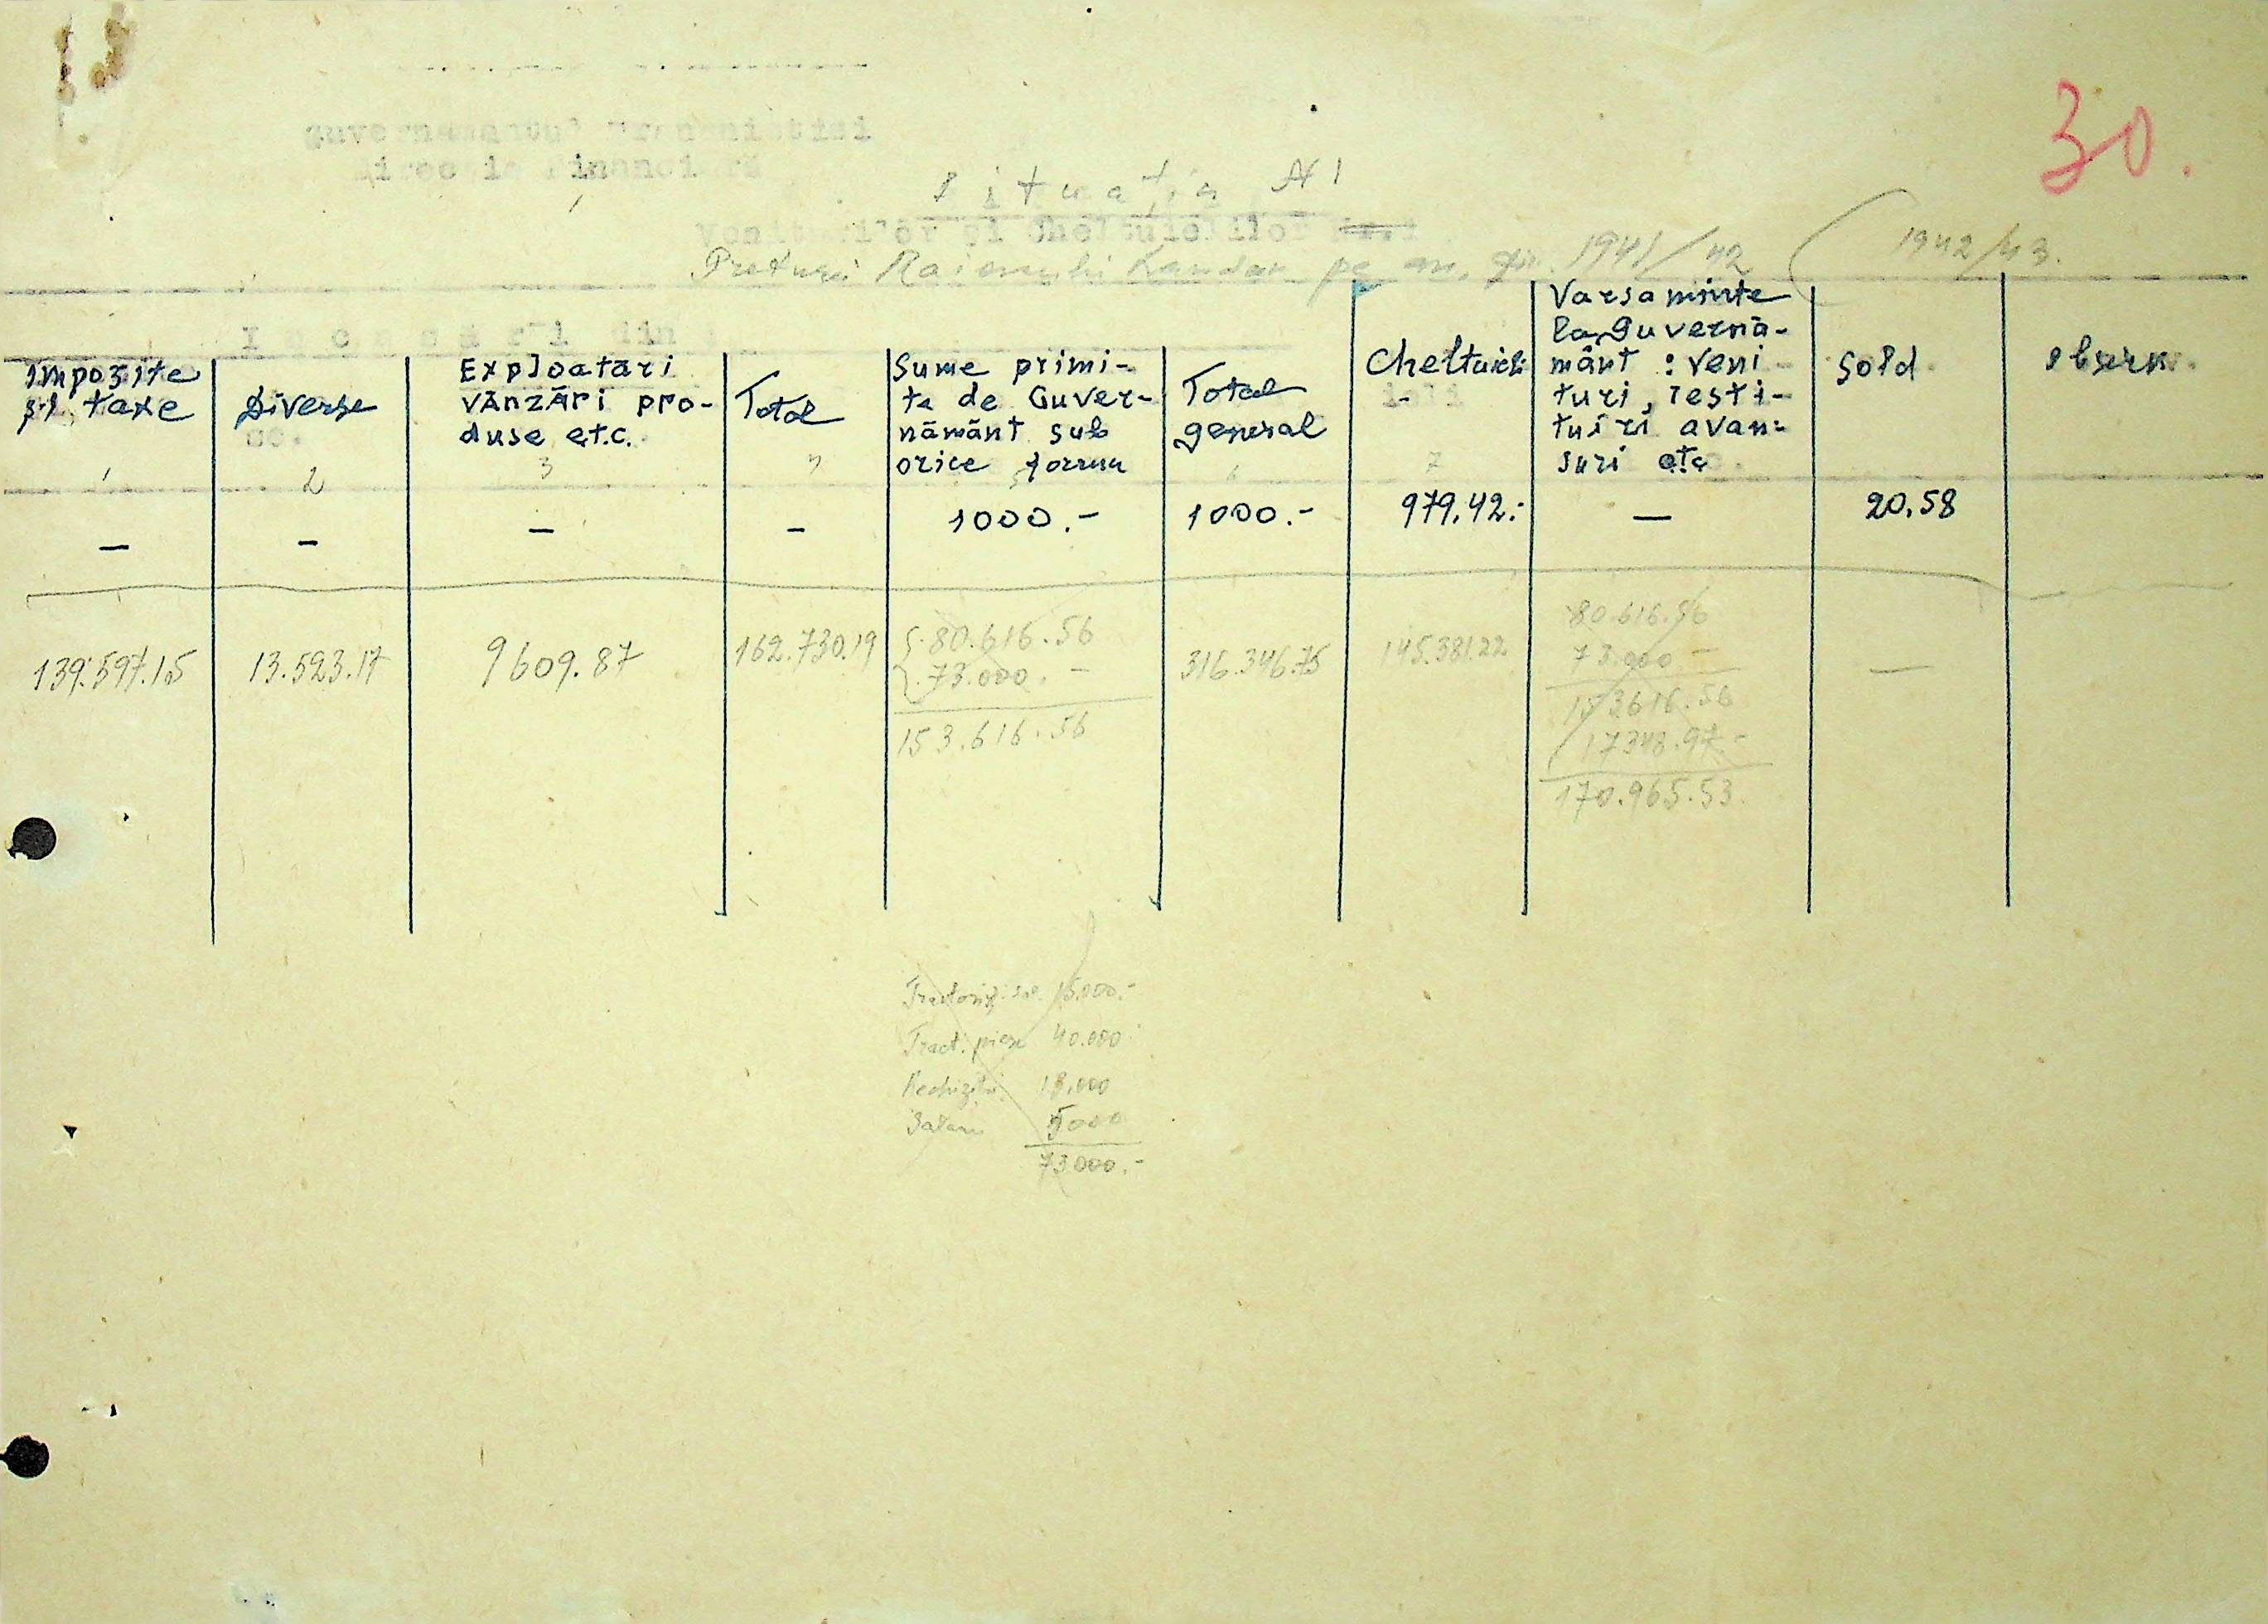 30.
guvernamantul Transnistriei
Situația N 1
Veniturilor și Cheltuielilor
Preturii Raionului Landau pe an. fin. 1941/42 (1942/43.
Incasări din
Impozite
și taxe
1
Diverse
2
Exploatări
vânzări pro-
duse etc.
3
Total
Sume primi-
te de Guver-
nământ sub
orice forma
5
Total
general
6
Cheltuieli
7
Varsaminte
la Guvernă-
mânt : veni
turi, resti-
tuiri avan-
suri etc
Sold
Observ.
— — — — 1000.- 1000.- 979,42.- — 20,58
139.597.15 13.523.17 9609.87 162.730.19 316.346.75 145.381.22 —
80.616.56
73.000.-
153.616.56
80.616.56
73.000.-
153616.56
17348.97.-
170.965.53
15.000.-
Tract. piese 40.000
Rechizitii 13.000
Salarii 5000
73.000.-